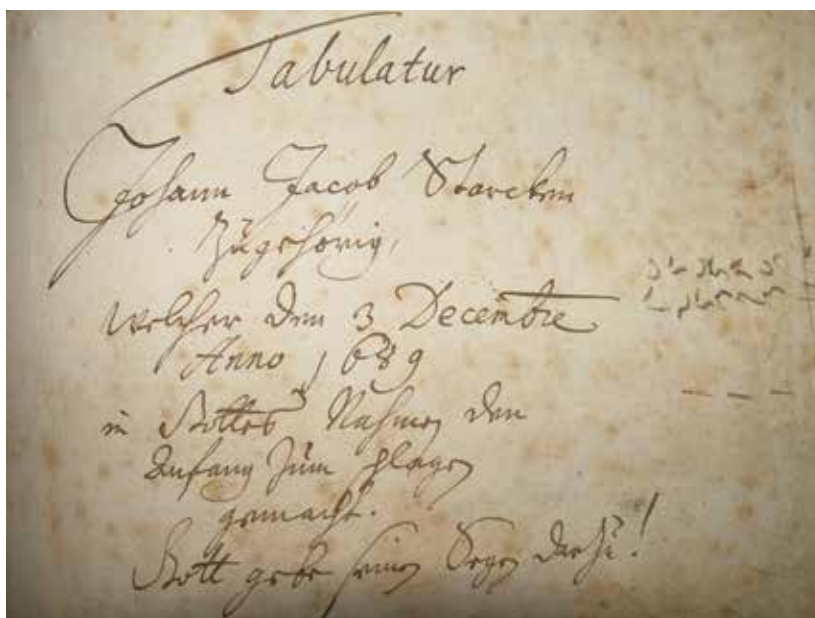 Tabulatur
Johann Jacob Starcken
Zugehörig,
Welcher den 3 Decembre
Anno 1689
in Gottes Nahmen den
Anfang Zum schlagen
gemacht.
Gott gebe seinen Segen darzu!